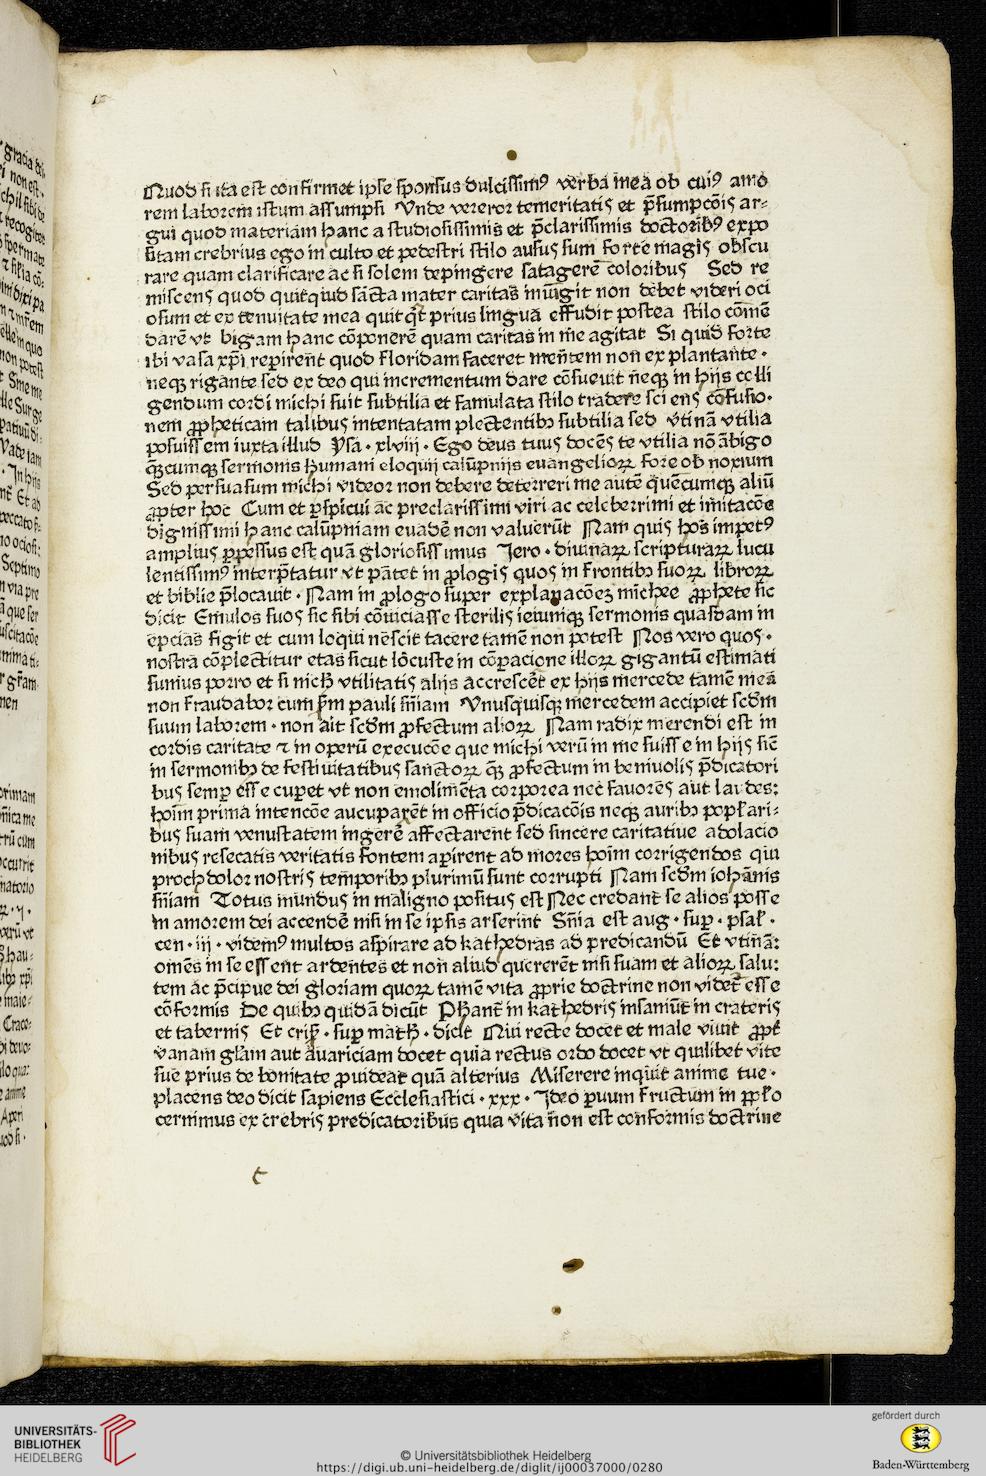 Quod si ita est confirmet ipse sponsus dulcissimꝰ verba mea ob cuiꝰ amo
rem laborem istum assumpsi Vnde vereror temeritatis et p̄sumpcōis ar⸗
gui quod materiam hanc a studiosissimis et p̄clarissimis doctoribꝰ expo
sitam crebrius ego in culto et pedestri stilo ausus sum forte magis obscu
rare quam clarificare ac si solem depingere satagerē coloribus Sed re
miscens quod quitquid sācta mater caritas iniūgit non debet videri oci
osum et ex tenuitate mea quit qͥt prius linguā effudit postea stilo cōmē
darē vt bigam hanc cōponerē quam caritas in me agitat Si quid forte
ibi vasa xp̄i reperirent quod floridam faceret mentem non ex plantante ·
neqꝫ rigante sed ex deo qui incrementum dare cōsueuit neqꝫ in hijs colli
gendum cordi michi fuit subtilia et famulata stilo tradere sci ens cōfusio·
nem ꝓpheticam talibus intentatam plectentibꝫ subtilia sed vtinā vtilia
posuissem iuxta illud Ysa · xlviij · Ego deus tuus docēs te vtilia nō ābigo
qͣꝫcumqꝫ sermonis humani eloquij calūpnijs euangelioꝝ fore ob noxium
Sed persuasum michi videor non debere deterreri me autē quēcumqꝫ aliū
ꝓpter hoc Cum et ꝑspicui ac preclarissimi viri ac celeberrimi et imitacōe
dignissimi hanc calūpniam euadē non valuerūt Nam quis hos impetꝰ
amplius ꝑpessus est quā gloriosissimus Jero · diuinaꝝ scripturaꝝ lucu
lentissimꝰ interp̄tatur vt patet in ꝓlogis quos in frontibꝫ suoꝝ libroꝝ
et biblie p̄locauit · Nam in ꝓlogo super explanacōeꝫ michee ꝓphete sic
dicit Emulos suos sic sibi cōuiciasse sterilis ieiuniqꝫ sermonis quasdam in
epcias figit et cum loqui nescit tacere tamē non potest Nos vero quos·
nostra cōplectitur etas sicut lōcuste in cōꝑacione illoꝝ gigantū estimati
sumus porro et si nich vtilitatis alijs accrescēt ex hijs mercede tamē mea
non fraudabor cum ẜm pauli sn̄iam Vnusquisqꝫ mercedem accipiet scdm̄
suum laborem · non ait scdm̄ ꝓfectum alioꝝ Nam radix merendi est in
cordis caritate ⁊ in operū execucōe que michi verū in me fuisse in hijs sic̄
in sermonibꝫ de festiuitatibus sanctoꝝ qͣꝫ ꝓfectum in beniuolis p̄dicatori
bus semꝑ esse cuperet vt non emolimēta corporea nec fauores aut laudes:
hoīm prima intencōe aucuparēt in officio p̄dicacōis neqꝫ auribꝫ popl̄ari⸗
bus suam venustatem ingerē affectarent sed sincere caritatiue adolacio
nibus resecatis veritatis fontem aꝑirent ad mores hoīm corrigendos qui
prochdolor nostris temporibꝫ plurimū sunt corrupti Nam scdm̄ iohānis
sn̄iam Totus mundus in maligno positus est Nec credant se alios posse
in amorem dei accendē nisi in se ipsis arserint Sn̄ia est aug · suꝑ · psal̄ ·
cen · iij · videmꝰ multos aspirare ad kathedras ad predicandū Et vtinā:
omēs in se essent ardentes et non aliud quererēt nisi suam et alioꝝ salu:
tem ac p̄cipue dei gloriam quoꝝ tamē vita ꝓprie doctrine non videt̄ esse
cōformis De quibꝫ quidā dicūt Phant̄ in kathedris insaniūt in crateris
et tabernis Et crisꝭ · suꝑ math · dicit Qui recte docet et male viuit ꝓpt̄
vanam gl̄am aut auariciam docet quia rectus ordo docet vt quilibet vite
sue prius de bonitate ꝓuideat quā alterius Miserere inquit anime tue ·
placens deo dicit sapiens Ecclesiastici · xxx · Jdeo ꝑuum fructum in ppl̄o
cernimus ex crebris predicatoribus quia vita non est conformis doctrine
UNIVERSITÄTS-
BIBLIOTHEK
HEIDELBERG
© Universitätsbibliothek Heidelberg
https://digi.ub.uni-heidelberg.de/diglit/ij00037000/0280
gefördert durch
Baden-Württemberg